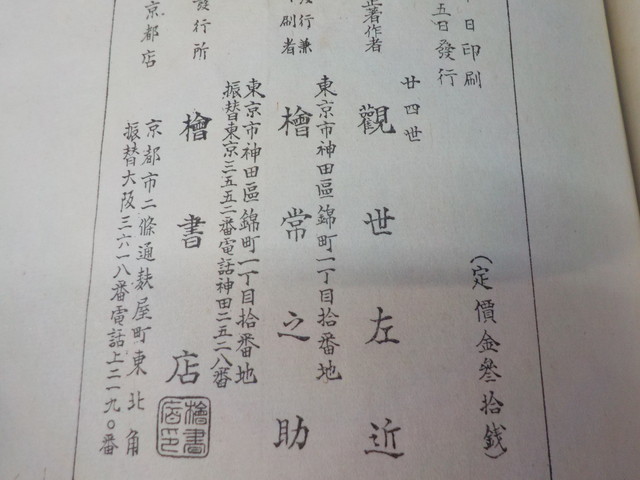 日印刷
五日發行
(定價金參拾錢)
著作者
廿四世
觀世左近
行兼
刷者
東京市神田區錦町一丁目拾番地
檜常之助
發行所
東京市神田區錦町一丁目拾番地
振替東京三五五二番電話神田二五二八番
檜書店
京都店
京都市二條通麸屋町東北角
振替大阪三六一八番電話上二一九〇番